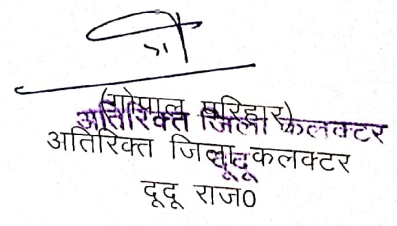 (गोपाल परिहार)
अतिरिक्त जिला कलक्टर
अतिरिक्त जिला कलक्टर
दूदू
दूदू राज0